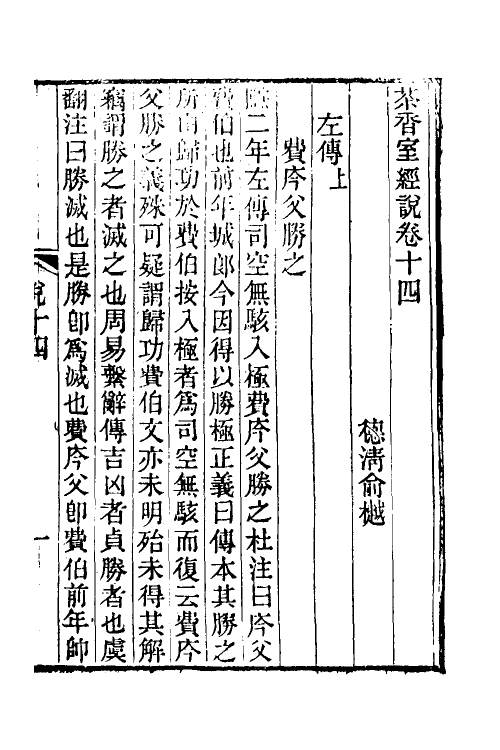 茶香室經說卷十四
德清俞樾
左傳上
費庈父勝之
隱二年左傳司空無駭入極費庈父勝之杜注曰庈父
費伯也前年城郎今因得以勝極正義曰傳本其勝之
所由歸功於費伯按入極者爲司空無駭而復云費庈
父勝之義殊可疑謂歸功費伯文亦未明殆未得其解
竊謂勝之者滅之也周易繫辭傳吉凶者貞勝者也虞
翻注曰勝滅也是勝卽爲滅也費庈父卽費伯前年帥
說十四
一